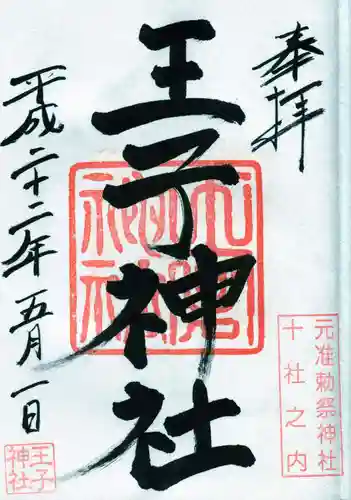 奉拝
王子神社
平成二十二年五月一日
元准勅祭神社
十社之内
王子
神社